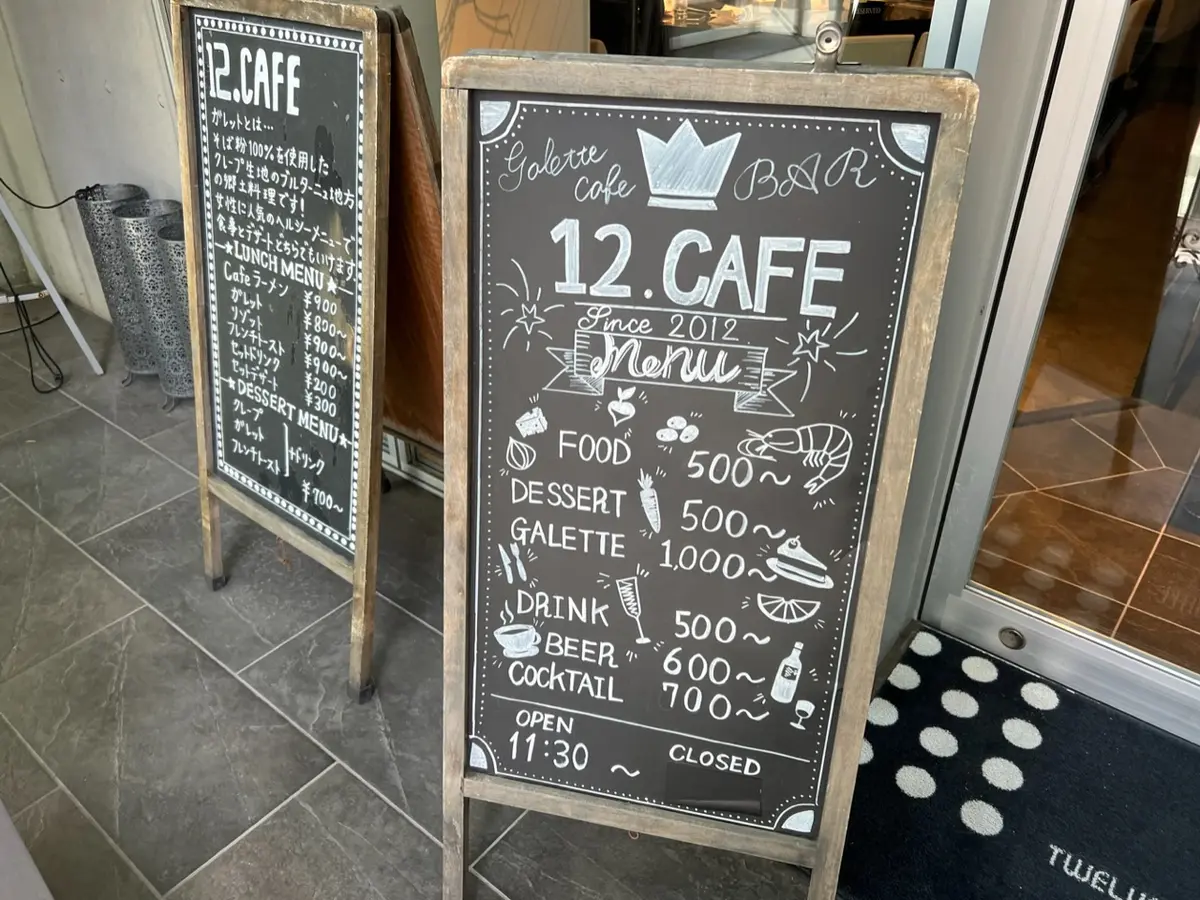 12.CAFE
ガレットとは…
そば粉100%を使用した
クレープ生地のブルターニュ地方
の郷土料理です!
女性に人気のヘルシーメニューで
食事とデザートどちらでもいけます。
★LUNCH MENU★
Cafeラーメン ¥900
ガレット ¥800~
リゾット ¥900~
フレンチトースト ¥900~
セットドリンク ¥200
セットデザート ¥300
★DESSERT MENU★
クレープ
ガレット
フレンチトースト
+ドリンク
¥700~
Galette
cafe
BAR
12.CAFE
Since 2012
Menu
FOOD 500~
DESSERT 500~
GALETTE 1,000~
DRINK 500~
BEER 600~
COCKTAIL 700~
OPEN
11:30 ~
CLOSED